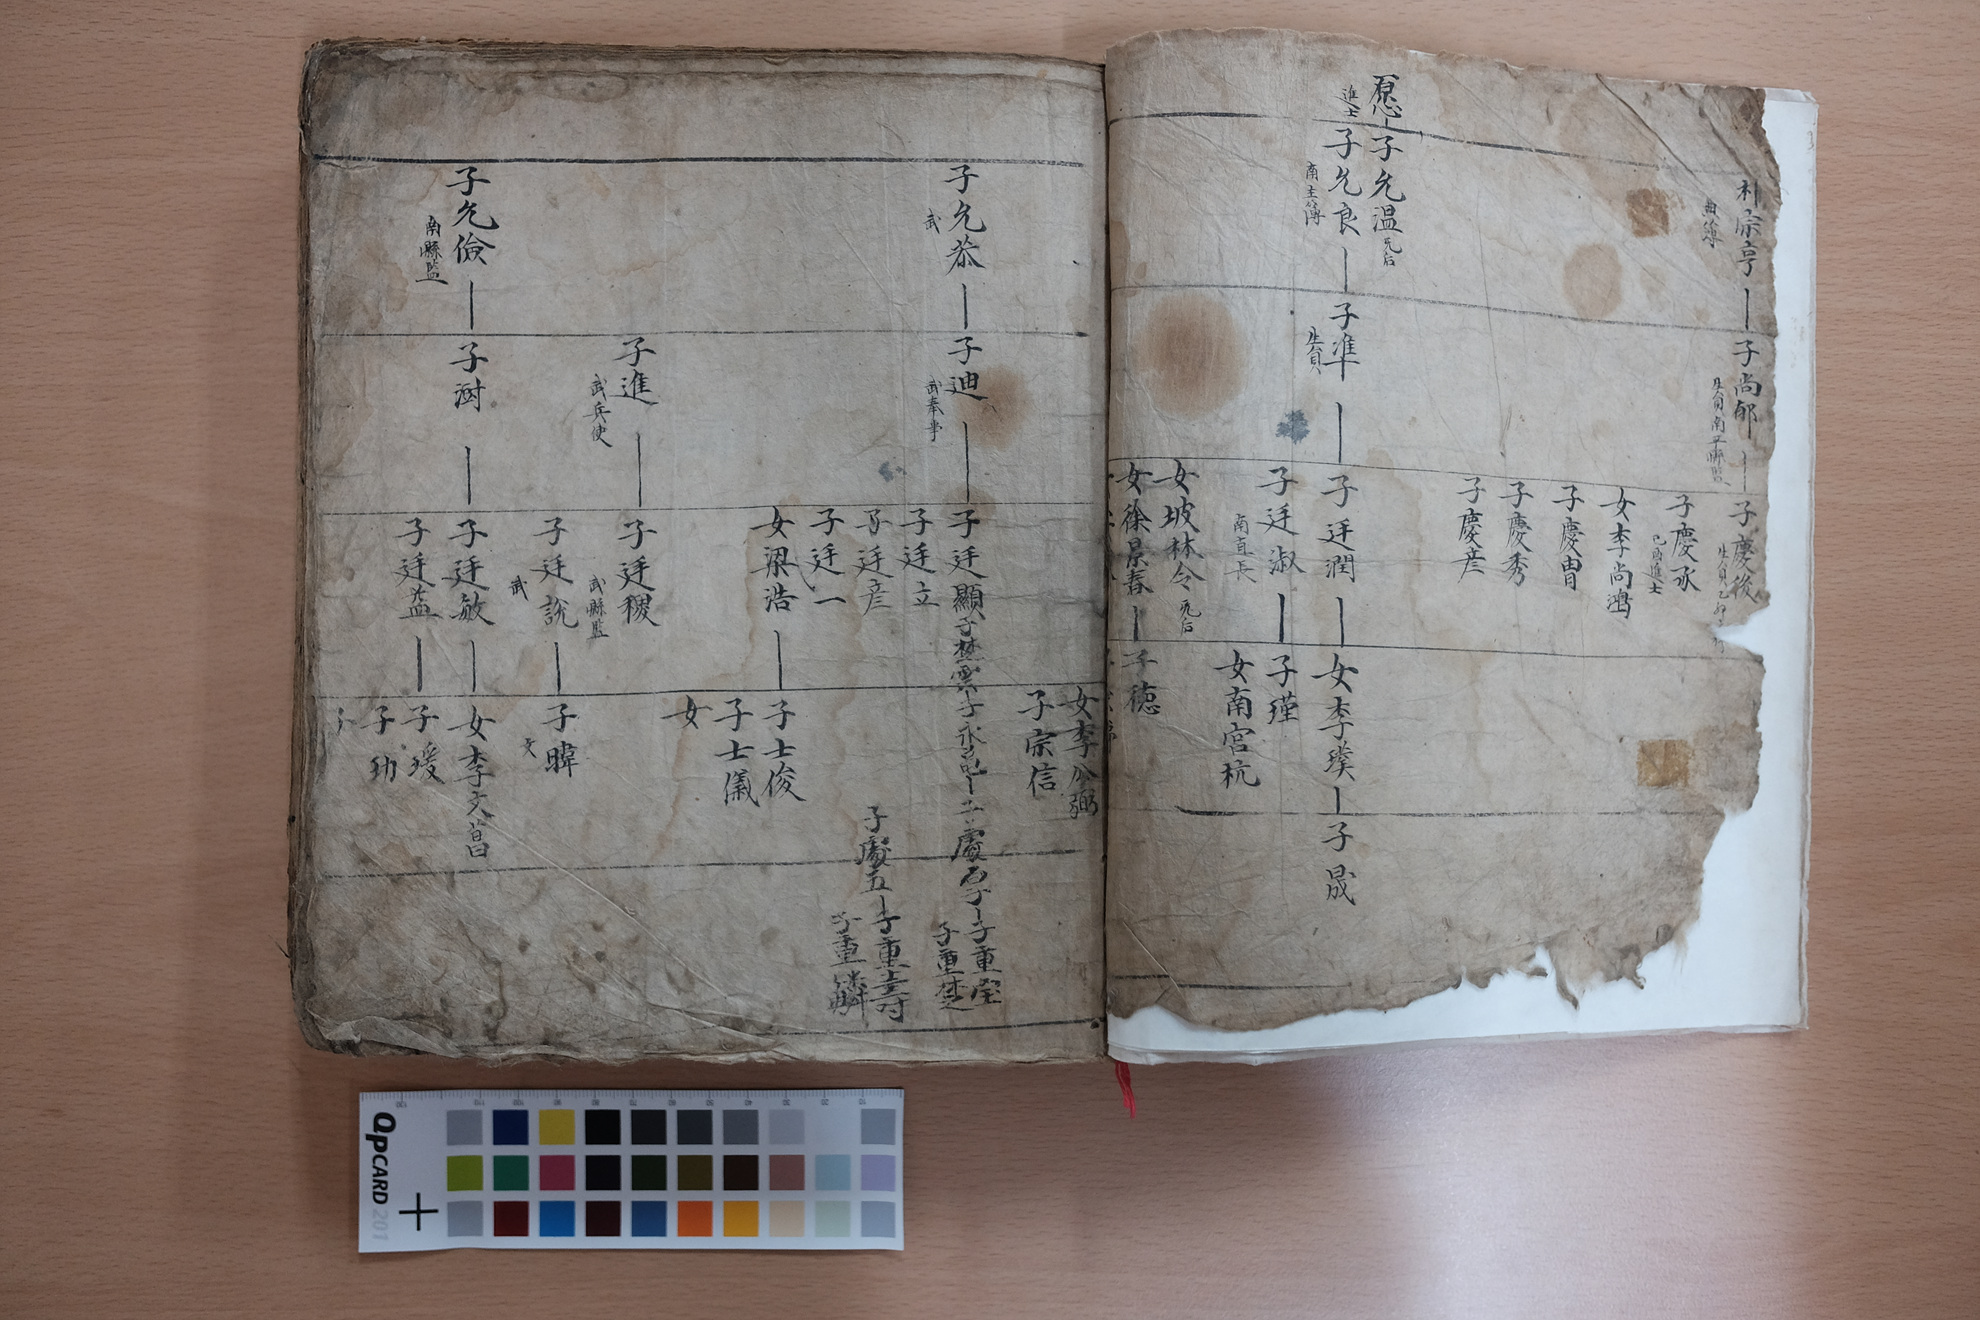 宗亨
子尚郁
子慶後
子慶承
女李尚鴻
子慶曺
子慶秀
子慶彦
愿
進士
子允温
無后
子允良
南主簿
子準
生員
子廷潤
子廷淑
南直長
女坡林令
無后
女徐景春
女李璞
子瑾
女南宮杭
子德
子晟
子允恭
武
子允儉
南縣監
子迪
武奉事
子進
武兵使
子澍
子廷顯
子廷立
子廷彦
子廷一
女梁浩
子廷稷
武縣監
子廷說
武
子廷敏
子廷益
女李公弼
子宗信
子楚雲
子士俊
子士儀
女
子暐
文
女李文昌
子瑗
子㓛
子慶五
子重壽
子重麟
子重楚
QPCARD 201